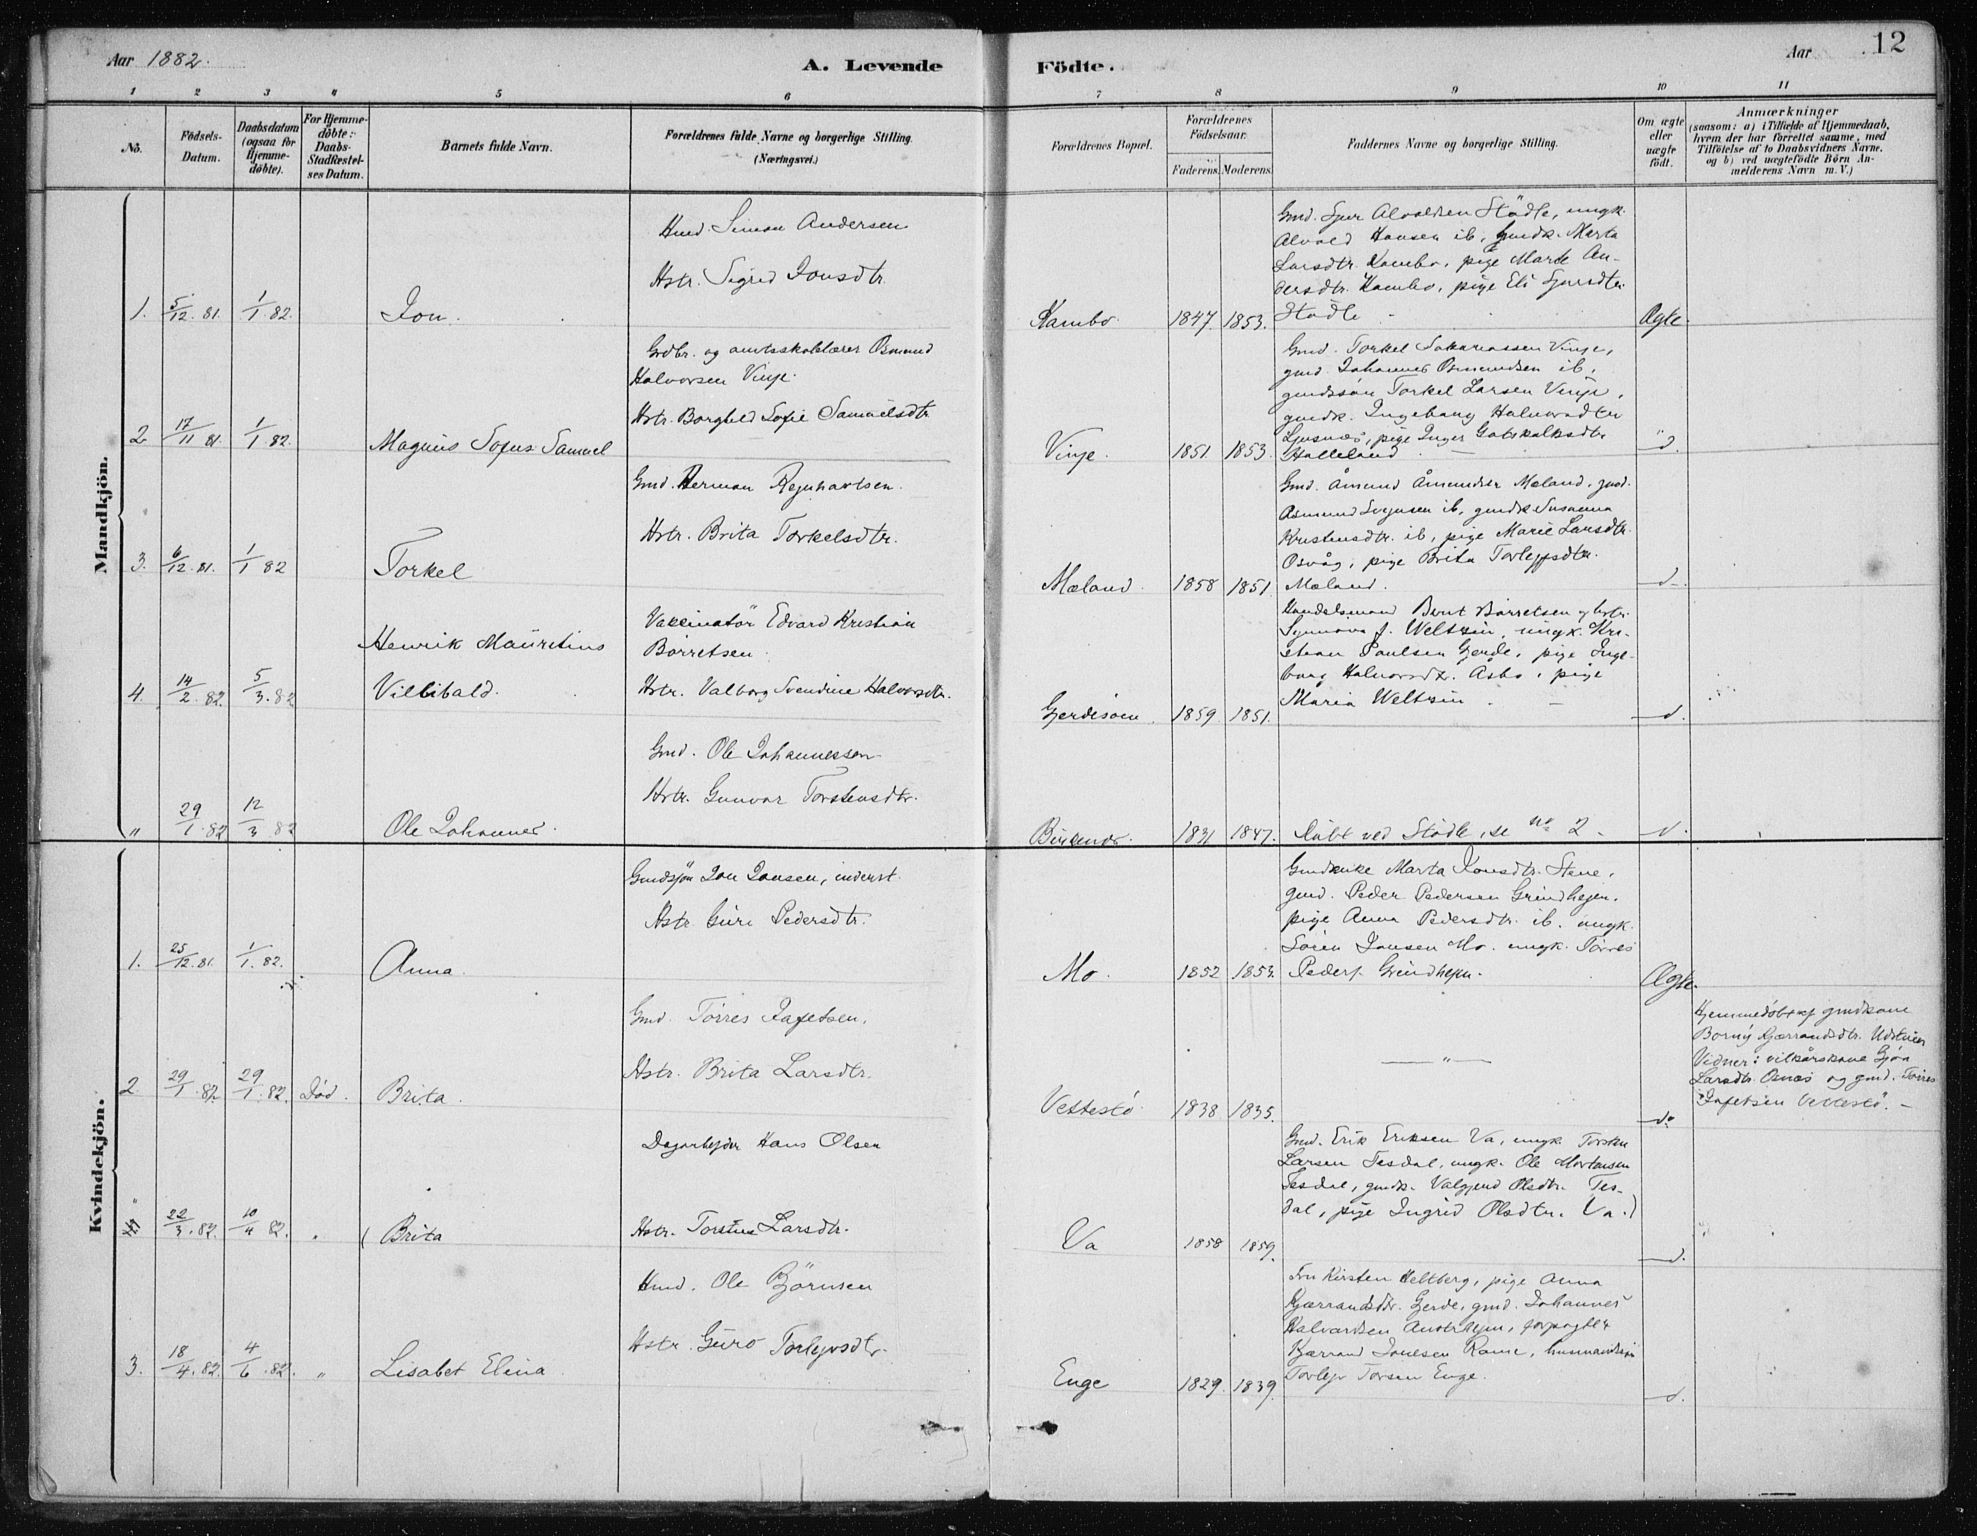 Aar 1882.
A. Levende
Födte.
Aar
12
1 2 3 4 5 6 7 8 9 10 11
No.
Födsels-
Datum.
Daabsdatum
(ogsaa for
Hjemme-
døbte).
For Hjemme-
döbte:
Daabs-
Stadfæstel-
ses Datum.
Barnets fulde Navn.
Forældrenes fulde Navne og borgerlige Stilling.
(Næringsvei.)
Forældrenes Bopæl.
Forældrenes
Födselsaar.
Faderens. Moderens.
Faddernes Navne og borgerlige Stilling.
Om ægte
eller
uægte
födt.
Anmærkninger
(saasom: a) i Tilfælde af Hjemmedaab,
hvem der har forrettet samme, med
Tilföielse af to Daabsvidners Navne,
og b) ved uægtefödte Börn An-
melderens Navn m. V.)
Mandkjön.
1. 5/12 81. 1/1 82. Jon.
Hmd. Simon Andersen
Hstr. Sigrid Jonsdtr.
Kambo. 1847 1853.
Gmd. Sjur Alvaldsen Stödle, ungk.
Alvald Hansen ib, gmdk. Marta
Larsdtr. Kambo, pige Marte An-
dersdtr. Kambo, pige Eli Sjursdtr.
Stödle
Ægte.
2 17/11 81. 1/1 82. Magnus Sofus Samuel
Grdbr. og amtsskolelærer Osmund
Halvorsen Vinje.
Hstr. Borghild Sofie Samuelsdtr.
Vinje. 1851. 1853.
Gmd. Torkel Sakariassen Vinje,
gmd. Johannes Osmundsen ib,
gmdssön Torkel Larsen Vinje,
gmdk. Ingeborg Halvorsdtr
Ljusnæs, pige Inger Gotskalksdtr.
Halleland.
d.
3. 6/12 81. 1/1 82 Torkel
Gmd. Herman Reinhartsen.
Hstr. Brita Torkelsdtr.
Mæland. 1858 1851
Gmd. Åmund Åmundsen Mæland, gmd.
Osmund ib, gmdk Susanna
Kristensdtr. ib, pige Marie Larsdtr.
Osvåg, pige Brita Torleifsdtr.
Mæland.
d
4. 14/2 82 5/3 82 Henrik Mauritius
Villibald.
Vakcinatör Edvard Kristian
Börretsen.
Hstr. Valborg Svendine Halvorsdtr.
1859 1851.
Handelsmand Bernt Börretsen og hstr.
Synnöva f. Weltzin, ungk. Kri-
stian Paulsen Gjerde, pige Inge-
borg Halvorsdtr. Åsbo, pige
Maria Weltzin.
d.
" 29/1 82 12/3 82 Ole Johannes.
Gmd. Ole Johannessen
Hstr. Gunvor Torstensdtr.
1831 1847.
Döbt ved Stödle, se No 2.
d.
Kvindekjön.
1. 25/12 81 1/1 82. Anna.
Gmdssön Jon Jonsen, inderst.
Hstr. Guri Pedersdtr.
Mo. 1852 1853.
Gmdenke Marta Jonsdtr. Stene,
gmd. Peder Pedersen Grindhejm.
pige Anna Pedersdtr. ib. ungk.
Sören Jonsen Mo. ungk. Törres
Peders. Grindhejm.
Ægte.
2. 29/1 82 29/1 82. Död. Brita.
Gmd. Törres Jafetsen.
Hstr. Brita Larsdtr.
Vettestö. 1838 1835.
— " —
do
Hjemmedöbt af gmdkone
Borny Gjærrandsdtr.
Vidner: vilkårskone Gjöa
Larsdtr. Osnæs og gmd. Törres
Jafetsen Vettestö. —
" 22/3 82. 10/4 82. " (Brita
Dagarbejder Hans Olsen
Hstr. Torstine Larsdtr.
Va 1858 1859.
Gmd. Erik Eriksen Va, ungk. Torsten
Larsen Tesdal, ungk. Ole Mortensen
Tesdal, gmdk. Valgjerd Olsdtr. Tes-
dal, pige Ingrid Olsdtr. Va.)
d.
3. 18/4 82. 4/6 82. " Lisabet Elina
Hmd. Ole Björnsen
Hstr. Guro Torleivsdtr.
Enge 1829. 1839.
Fru Kirsten Heltberg, pige Anna
Gjærrandsdtr. Gjerde, gmd. Johannes
Halvardsen Austrhejm, forpagter
Gjærrand Jonesen Rame, husmandssön
Torleiv Torsen Enge.
d.